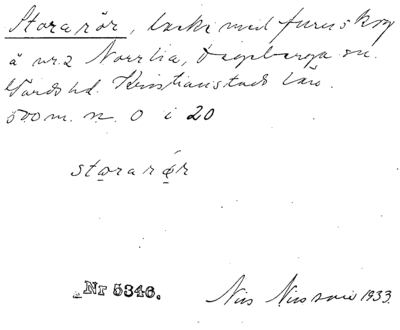 Stora rör, backe med furuskog
å nr 2 Norrlia, Degeberga sn.
Gärds hd. Kristianstads län.
500 m. n. O i 20
stora rör
Nr 5346.
Nils Nilsson 1933.